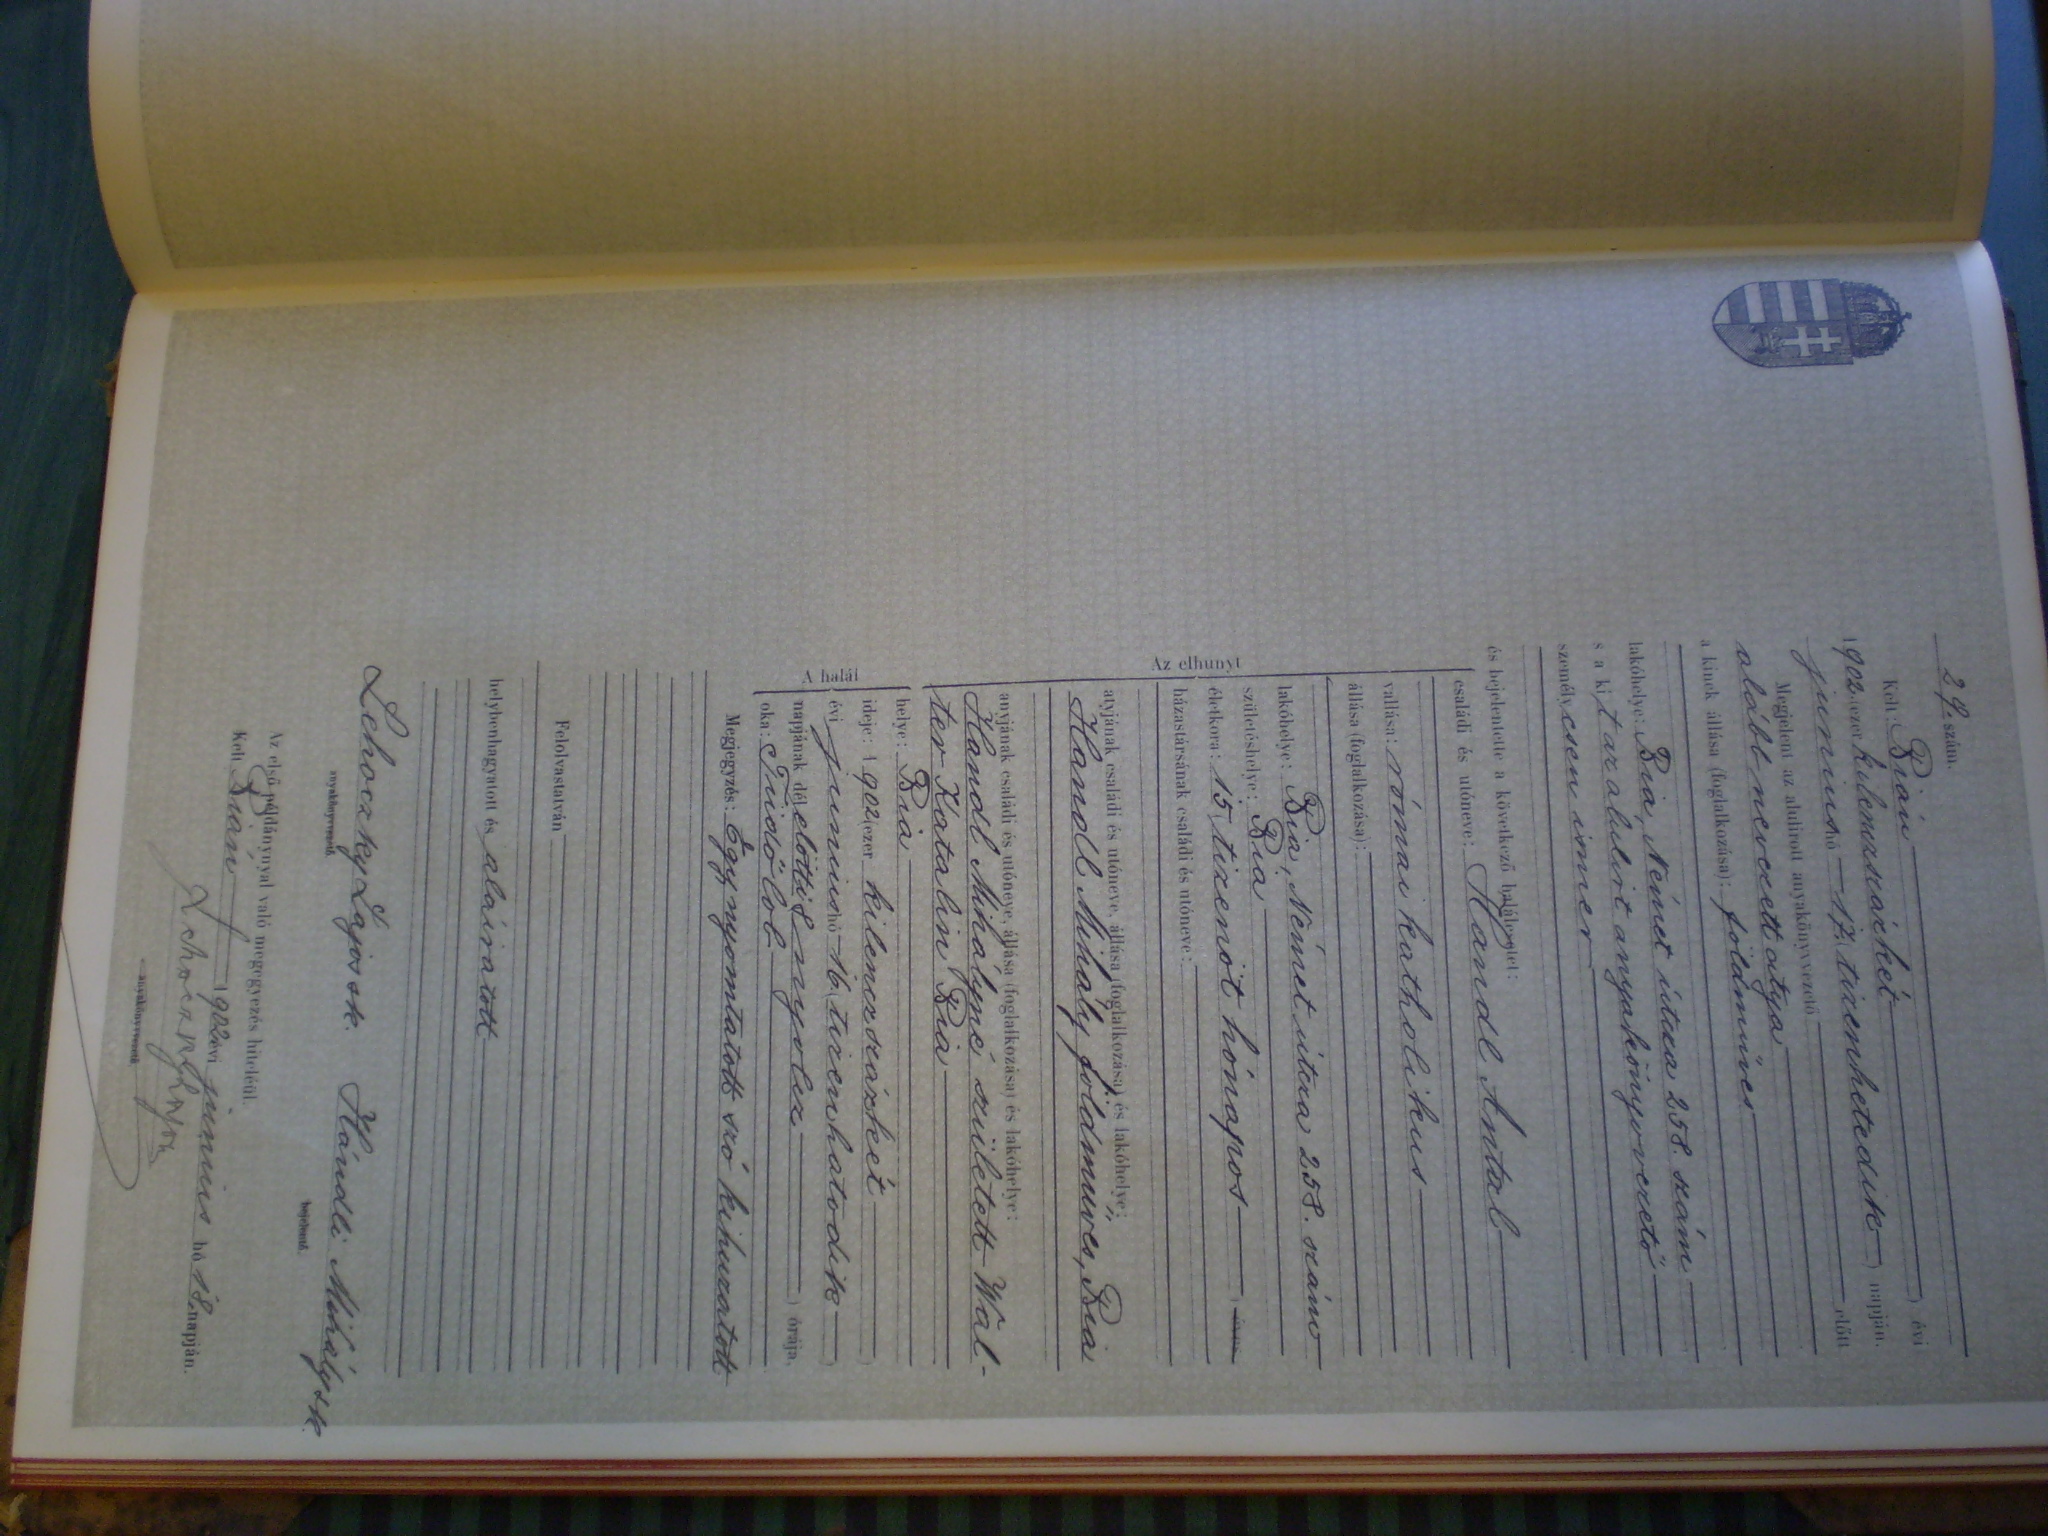 29. szám.
Kelt: Bián ) évi
1902 (ezer kilenczszázkét
junius hó 17. (tizenhetedik ) napján.
Megjelent az alulirott anyakönyvvezető előtt
alább nevezett atya
a kinek állása (foglalkozása): földmüves
lakóhelye: Bia, Német utcza 258. szám
s a ki t az alulirt anyakönyvvezető
személyesen ismer
és bejelentette a következő halálesetet:
Az elhunyt
családi és utóneve: Handl Antal
vallása: római katholikus
állása (foglalkozása):
lakóhelye: Bia, Német utcza 258. szám
születéshelye: Bia
életkora: 15, tizenöt hónapos ) éves
házastársának családi és utóneve:
atyjának családi és utóneve, állása (foglalkozása) és lakóhelye:
Handl Mihály földmüves, Bia
anyjának családi és utóneve, állása (foglalkozása) és lakóhelye:
Handl Mihályné született Wal-
ter Katalin Bia
A halál
helye: Bia
ideje: 1902 (ezer kilenczszázkét )
évi junius hó 16. (tizenhatodik )
napjának dél előtti 8 nyolcz ) órája.
oka: Tüdőlob
Megjegyzés: Egy nyomtatott szó kihuzatott
Felolvastatván
helybenhagyatott és aláiratott
Lehoczky Lajos sk. Hándli Mihály sk.
anyakönyvvezető. bejelentő.
Az első példánynyal való megegyezés hiteléül.
Kelt Bián 1902 évi junius hó 18. napján.
Lehoczky Lajos
anyakönyvvezető.